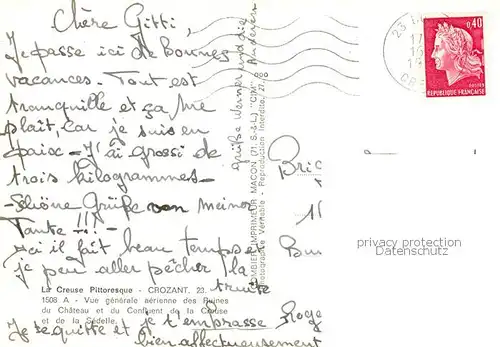 Chère Gitti,
Je passe ici de bonnes
vacances. Tout est
tranquille et ça me
plaît, car je suis en
paix - J'ai grossi de
trois kilogrammes -
Schöne Grüße von meiner
Tante !!! -
ici il fait beau temps
je peu aller pêcher la
truite
La Creuse Pittoresque - CROZANT, 23.
1508 A - Vue générale aérienne des Ruines
du Château et du Confluent de la Creuse
et de la Sédelle.
Je te quitte et je t'emprasse
bien affectueusement
Roge
grüße Werner und die
Anderen
COMBIER IMPRIMEUR MACON (71. S.-&-L.) "CIM"
Photographie Véritable - Reproduction Interdite.
23
0,40
REPUBLIQUE FRANÇAISE
Bric
Bu
privacy protection
Datenschutz